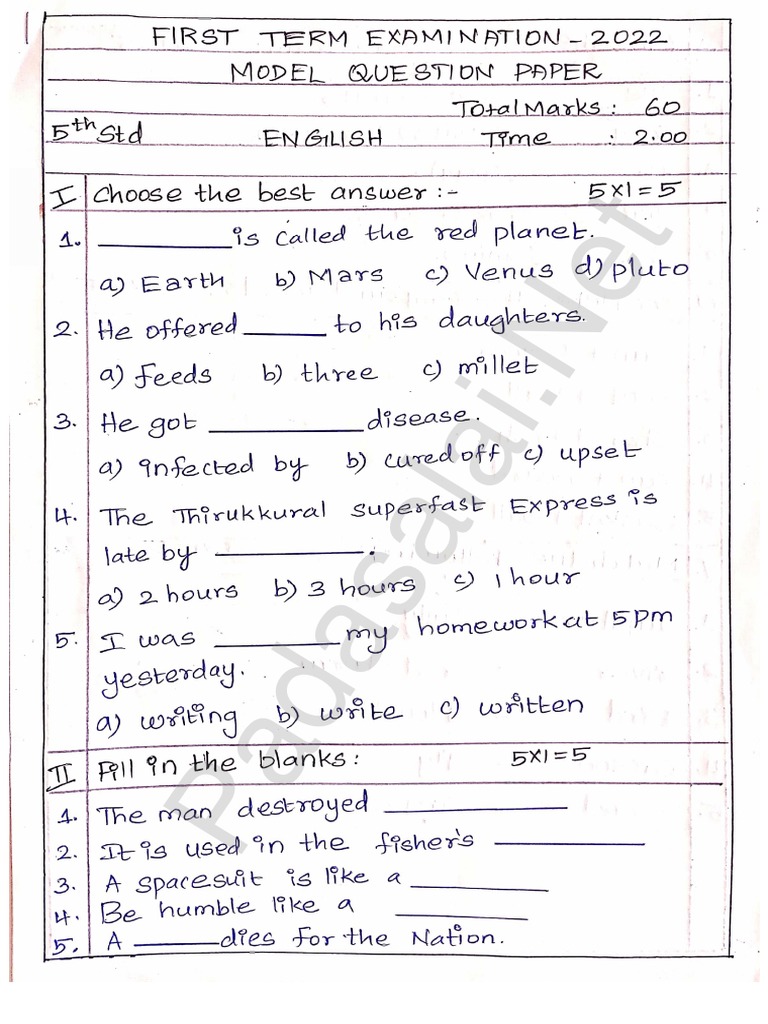 FIRST TERM EXAMINATION - 2022
MODEL QUESTION PAPER
Total Marks : 60
5th Std ENGLISH Time : 2.00
I Choose the best answer :- 5X1=5
1. ________ is called the red planet.
a) Earth b) Mars c) Venus d) pluto
2. He offered ______ to his daughters.
a) feeds b) three c) millet
3. He got ________ disease.
a) infected by b) cured off c) upset
4. The Thirukkural superfast Express is
late by ________.
a) 2 hours b) 3 hours c) 1 hour
5. I was ________ my homework at 5pm
yesterday.
a) writing b) write c) written
II Fill in the blanks : 5X1=5
1. The man destroyed ________
2. It is used in the fisher's ________
3. A spacesuit is like a ________
4. Be humble like a ________
5. A ______ dies for the Nation.
Padasalai.Net